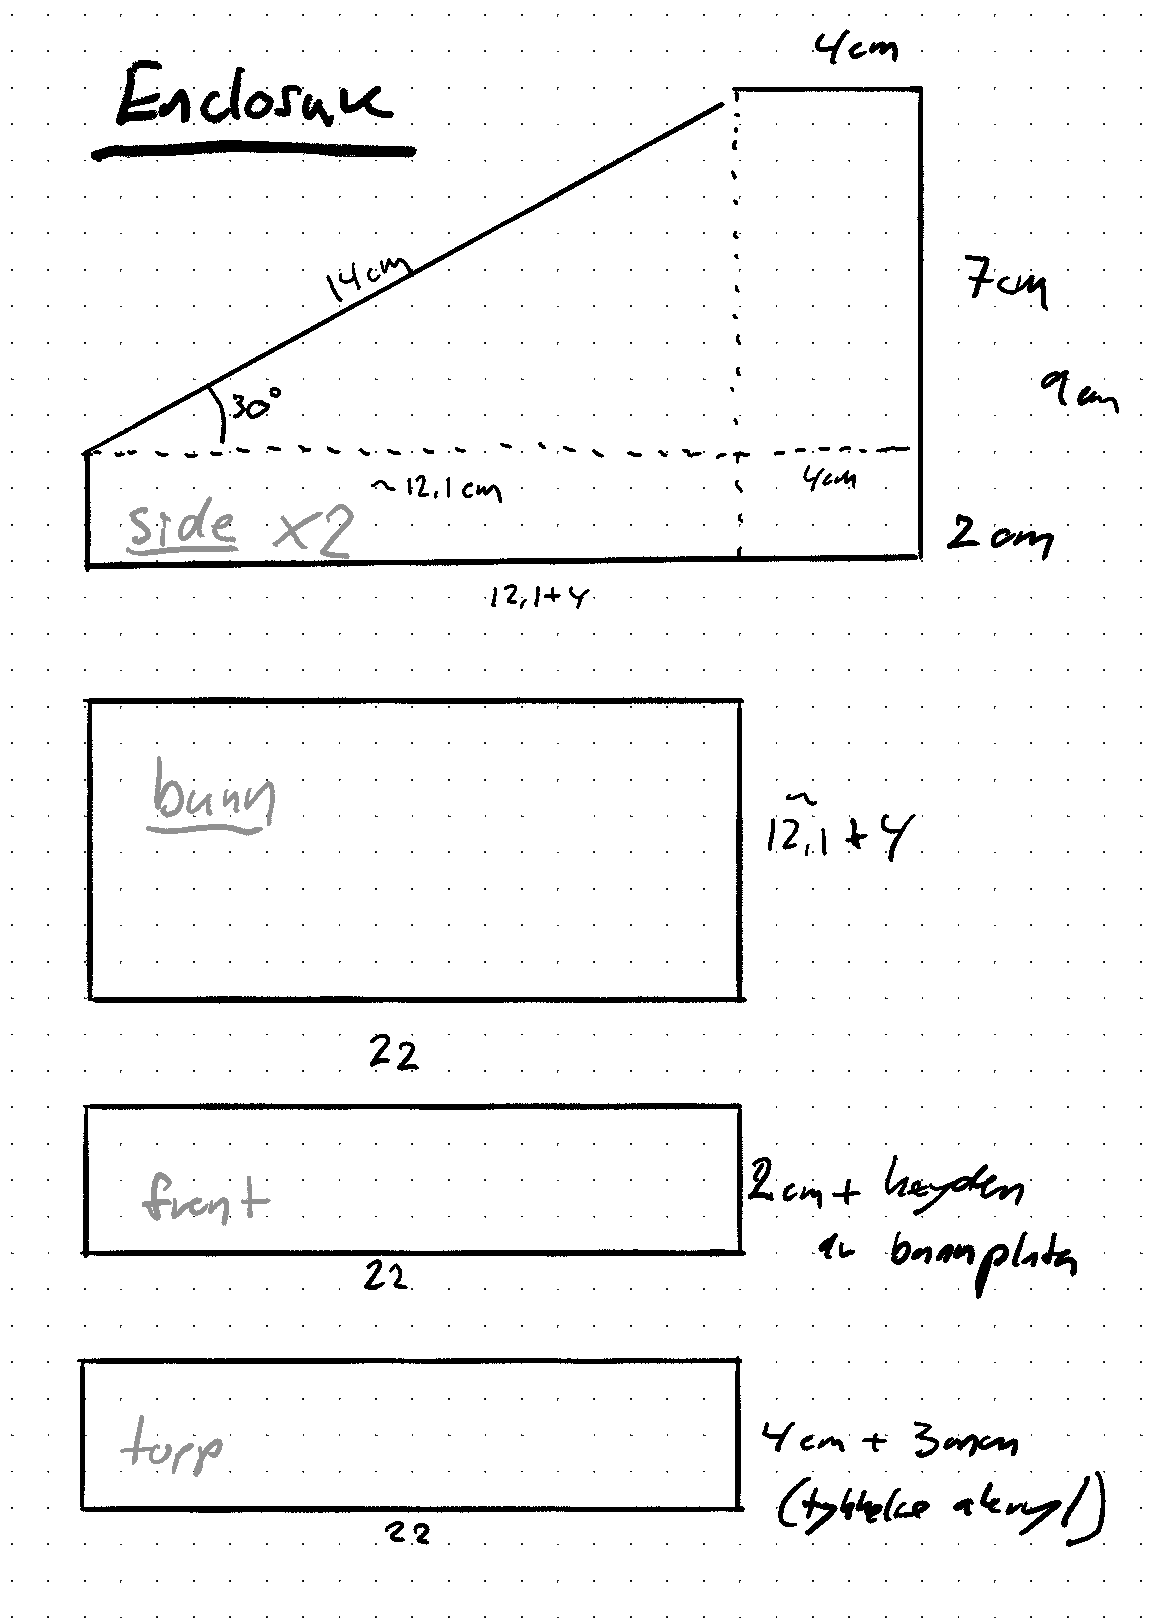 4cm
Enclosure
14cm
7cm
9cm
30°
~12,1cm
4cm
side x2
2cm
12,1+4
bunn
~
12,1 + 4
22
front
2cm + høyden
av bunnplata
22
topp
4cm + 3mm
(tykkelse akryl)
22